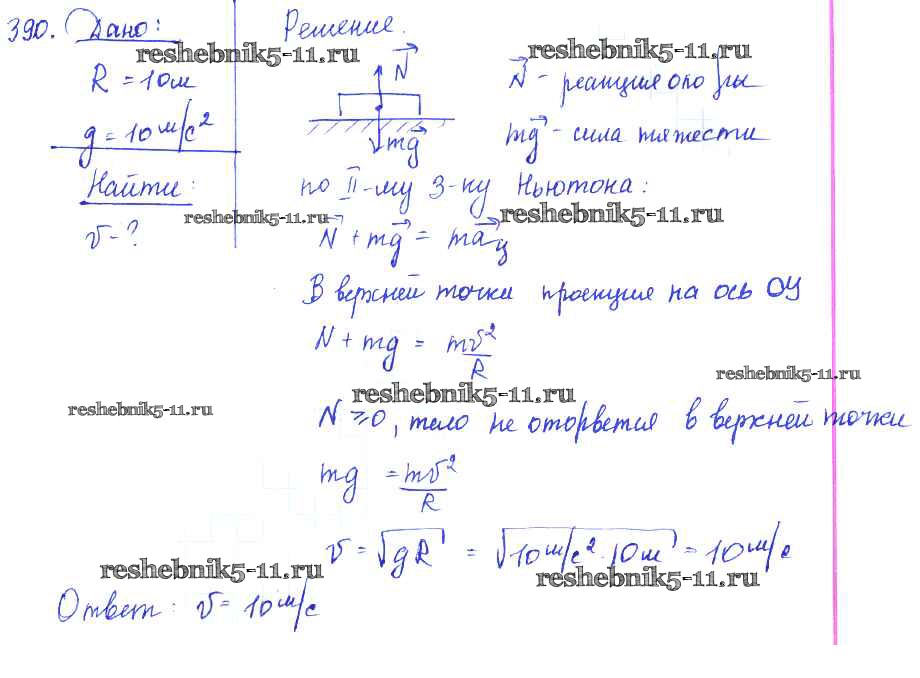 390. Дано: Решение.
reshebnik5-11.ru reshebnik5-11.ru
R = 10м N N - реакция опоры
g = 10 м/с² mg mg - сила тяжести
Найти: по II-му З-ну Ньютона:
reshebnik5-11.ru reshebnik5-11.ru
v - ? N + mg = maц
В верхней точки проекция на ось OY
N + mg = mv²/R
reshebnik5-11.ru
reshebnik5-11.ru reshebnik5-11.ru
N ≥ 0, тело не оторвется в верхней точки
mg = mv²/R
v = √gR = √10 м/с² · 10м = 10 м/с
reshebnik5-11.ru reshebnik5-11.ru
Ответ: v = 10 м/с